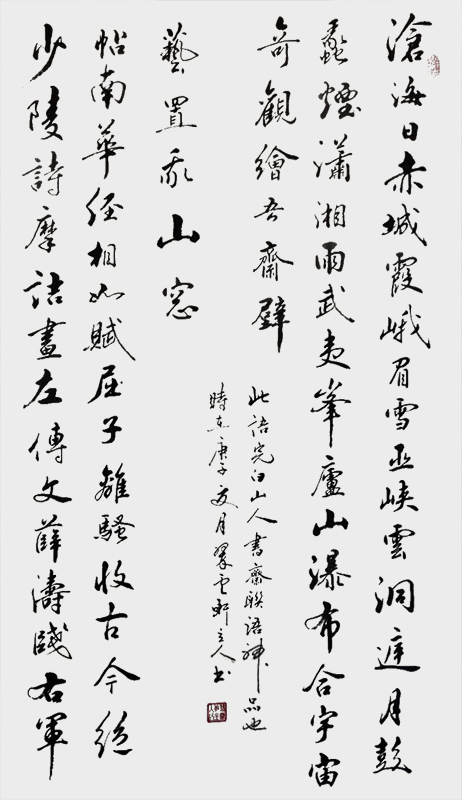 滄海日赤城霞峨眉雪巫峽雲洞庭月彭
蠡煙瀟湘雨武夷峯廬山瀑布合宇宙
奇觀繪吾齋壁
少陵詩摩詰畫左傳文薛濤牋右軍
帖南華經相如賦屈子離騷收古今絕
藝置我山窓
此語完白山人書齋聯語神品也
時在庚子夏月主人書